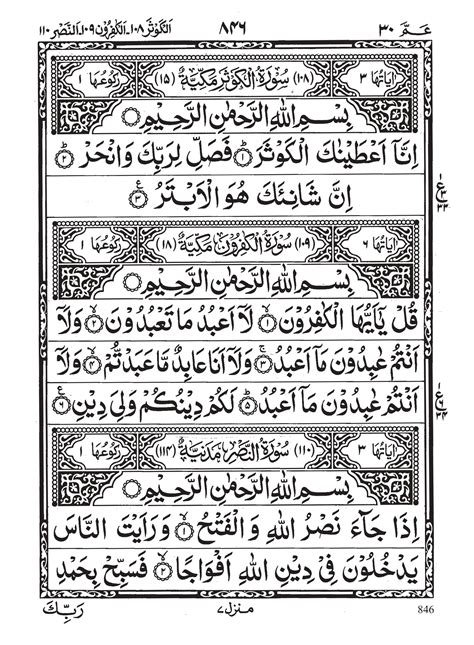 عـمّ ٣٠
٨٤٦
الكوثر ١٠٨۔الكفرون ١٠٩۔النصر ١١٠
اٰيَاتُهَا ٣ (١٠٨) سُوْرَةُ الْكَوْثَرِ مَكِّيَّةٌ (١٥) رُكُوْعُهَا ١
بِسْمِ اللهِ الرَّحْمٰنِ الرَّحِيْمِ
اِنَّاۤ اَعْطَيْنٰكَ الْكَوْثَرَ ۝١ فَصَلِّ لِرَبِّكَ وَانْحَرْ ۝٢
اِنَّ شَانِئَكَ هُوَ الْاَبْتَرُ ۝٣
اٰيَاتُهَا ٦ (١٠٩) سُوْرَةُ الْكٰفِرُوْنَ مَكِّيَّةٌ (١٨) رُكُوْعُهَا ١
بِسْمِ اللهِ الرَّحْمٰنِ الرَّحِيْمِ
قُلْ يٰۤاَيُّهَا الْكٰفِرُوْنَ ۝١ لَاۤ اَعْبُدُ مَا تَعْبُدُوْنَ ۝٢ وَلَاۤ
اَنْتُمْ عٰبِدُوْنَ مَاۤ اَعْبُدُ ۝٣ وَلَاۤ اَنَا عَابِدٌ مَّا عَبَدْتُّمْ ۝٤ وَلَاۤ
اَنْتُمْ عٰبِدُوْنَ مَاۤ اَعْبُدُ ۝٥ لَكُمْ دِيْنُكُمْ وَلِيَ دِيْنِ ۝٦
اٰيَاتُهَا ٣ (١١٠) سُوْرَةُ النَّصْرِ مَدَنِيَّةٌ (١١٤) رُكُوْعُهَا ١
بِسْمِ اللهِ الرَّحْمٰنِ الرَّحِيْمِ
اِذَا جَآءَ نَصْرُ اللهِ وَالْفَتْحُ ۝١ وَرَاَيْتَ النَّاسَ
يَدْخُلُوْنَ فِيْ دِيْنِ اللهِ اَفْوَاجًا ۝٢ فَسَبِّحْ بِحَمْدِ
رَبِّكَ
منزل ٧
846